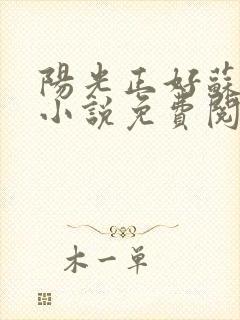 陽光正好蘇
小說免費閱
木一單